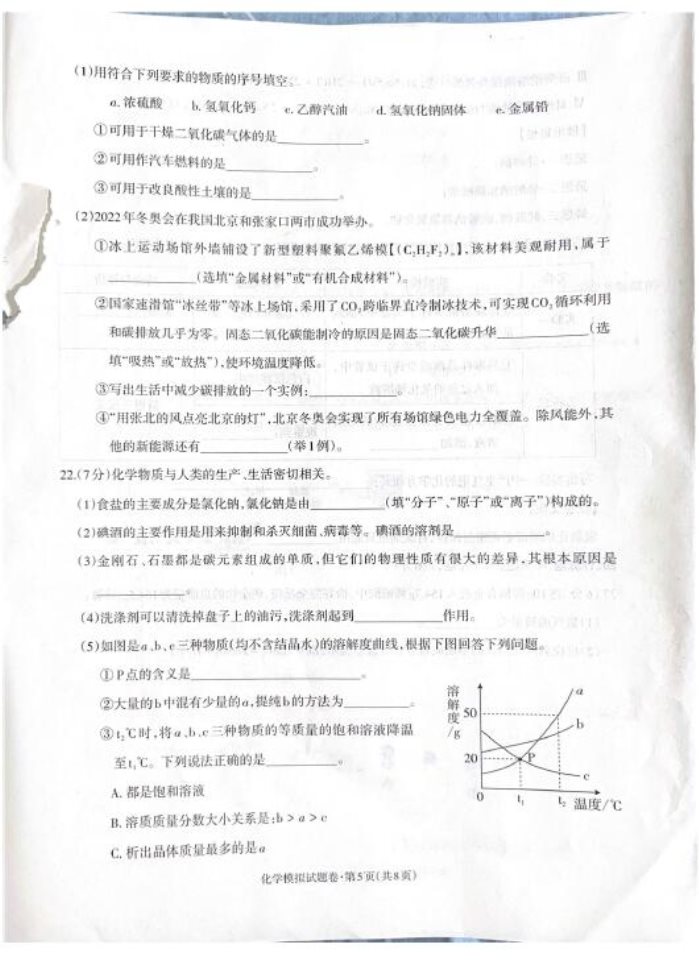 (1)用符合下列要求的物质的序号填空。
a. 浓硫酸 b. 氢氧化钙 c. 乙醇汽油 d. 氢氧化钠固体 e. 金属铅
①可用于干燥二氧化碳气体的是________。
②可用作汽车燃料的是________。
③可用于改良酸性土壤的是________。
(2)2022年冬奥会在我国北京和张家口两市成功举办。
①冰上运动场馆外墙铺设了新型塑料聚氟乙烯模【(C₂H₂F₂)ₙ】,该材料美观耐用,属于
________(选填“金属材料”或“有机合成材料”)。
②国家速滑馆“冰丝带”等冰上场馆,采用了CO₂跨临界直冷制冰技术,可实现CO₂循环利用
和碳排放几乎为零。固态二氧化碳能制冷的原因是固态二氧化碳升华________(选
填“吸热”或“放热”),使环境温度降低。
③写出生活中减少碳排放的一个实例:________。
④“用张北的风点亮北京的灯”,北京冬奥会实现了所有场馆绿色电力全覆盖。除风能外,其
他的新能源还有________(举1例)。
22.(7分)化学物质与人类的生产、生活密切相关。
(1)食盐的主要成分是氯化钠,氯化钠是由________(填“分子”、“原子”或“离子”)构成的。
(2)碘酒的主要作用是用来抑制和杀灭细菌、病毒等。碘酒的溶剂是________。
(3)金刚石、石墨都是碳元素组成的单质,但它们的物理性质有很大的差异,其根本原因是
________
(4)洗涤剂可以清洗掉盘子上的油污,洗涤剂起到________作用。
(5)如图是a、b、c三种物质(均不含结晶水)的溶解度曲线,根据下图回答下列问题。
①P点的含义是________。
②大量的b中混有少量的a,提纯b的方法为________。
③t₂℃时,将a、b、c三种物质的等质量的饱和溶液降温
至t₁℃。下列说法正确的是________。
A. 都是饱和溶液
B. 溶质质量分数大小关系是:b>a>c
C. 析出晶体质量最多的是a
溶解度/g
50
20
0
t₁
t₂
温度/℃
a
b
P
c
化学模拟试题卷·第5页(共8页)